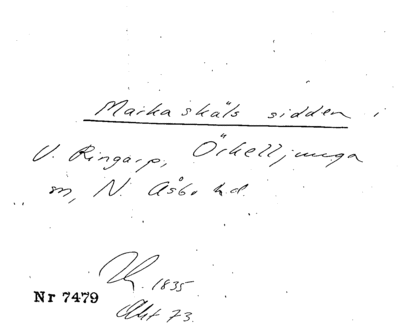 Markaskäls sidden i
V. Ringarp, Örkelljunga
sn, N. Åsbo hd.
1835
Nr 7479
Akt 73.